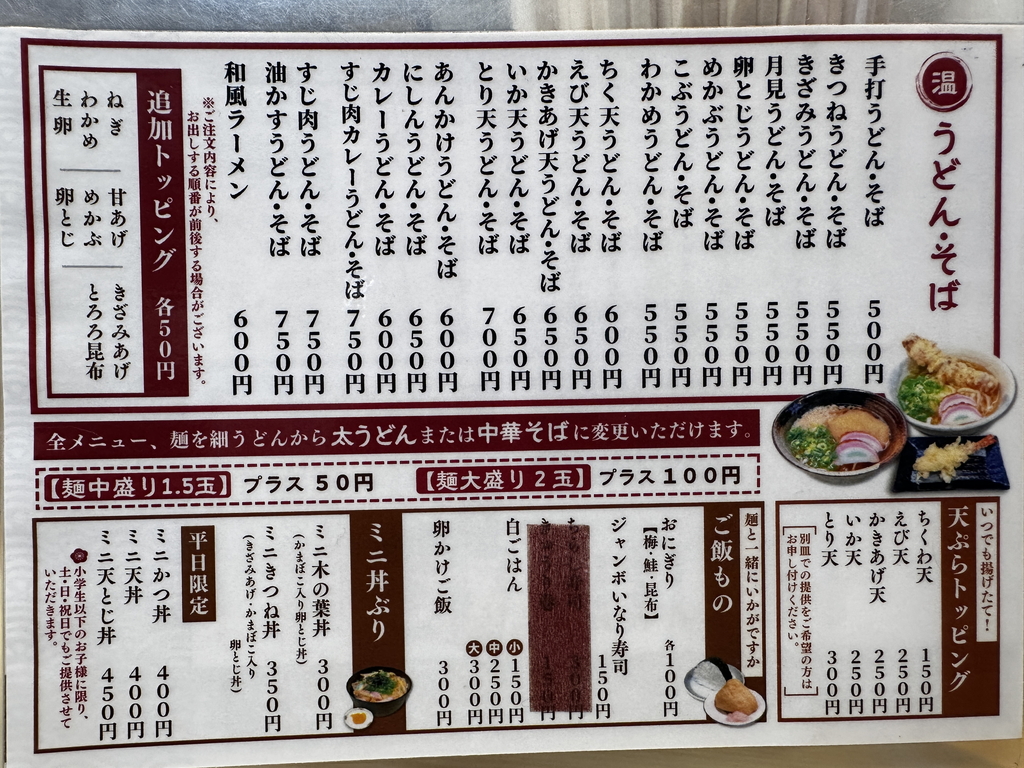 温 うどん・そば
手打うどん・そば 500円
きつねうどん・そば 550円
きざみうどん・そば 550円
月見うどん・そば 550円
卵とじうどん・そば 550円
めかぶうどん・そば 550円
こぶうどん・そば 550円
わかめうどん・そば 550円
ちく天うどん・そば 600円
えび天うどん・そば 650円
かきあげ天うどん・そば 650円
いか天うどん・そば 650円
とり天うどん・そば 700円
あんかけうどん・そば 600円
にしんうどん・そば 650円
カレーうどん・そば 600円
すじ肉カレーうどん・そば 750円
すじ肉うどん・そば 750円
油かすうどん・そば 750円
和風ラーメン 600円
※ご注文内容により、
お出しする順番が前後する場合がございます。
追加トッピング 各50円
ねぎ 甘あげ きざみあげ
わかめ めかぶ とろろ昆布
生卵 卵とじ
全メニュー、麺を細うどんから太うどんまたは中華そばに変更いただけます。
【麺中盛り1.5玉】 プラス50円 【麺大盛り2玉】 プラス100円
いつでも揚げたて!
天ぷらトッピング
ちくわ天 150円
えび天 250円
かきあげ天 250円
いか天 250円
とり天 300円
別皿での提供をご希望の方は
お申し付けください。
麺と一緒にいかがですか
ご飯もの
おにぎり 各100円
【梅・鮭・昆布】
ジャンボいなり寿司 150円
白ごはん 小 150円
中 250円
大 300円
卵かけご飯 300円
ミニ丼ぶり
ミニ木の葉丼 300円
(かまぼこ入り卵とじ丼)
ミニきつね丼 350円
(きざみあげ・かまぼこ入り
卵とじ丼)
平日限定
ミニかつ丼 400円
ミニ天丼 400円
ミニ天とじ丼 450円
小学生以下のお子様に限り、
土・日・祝日でもご提供させて
いただきます。